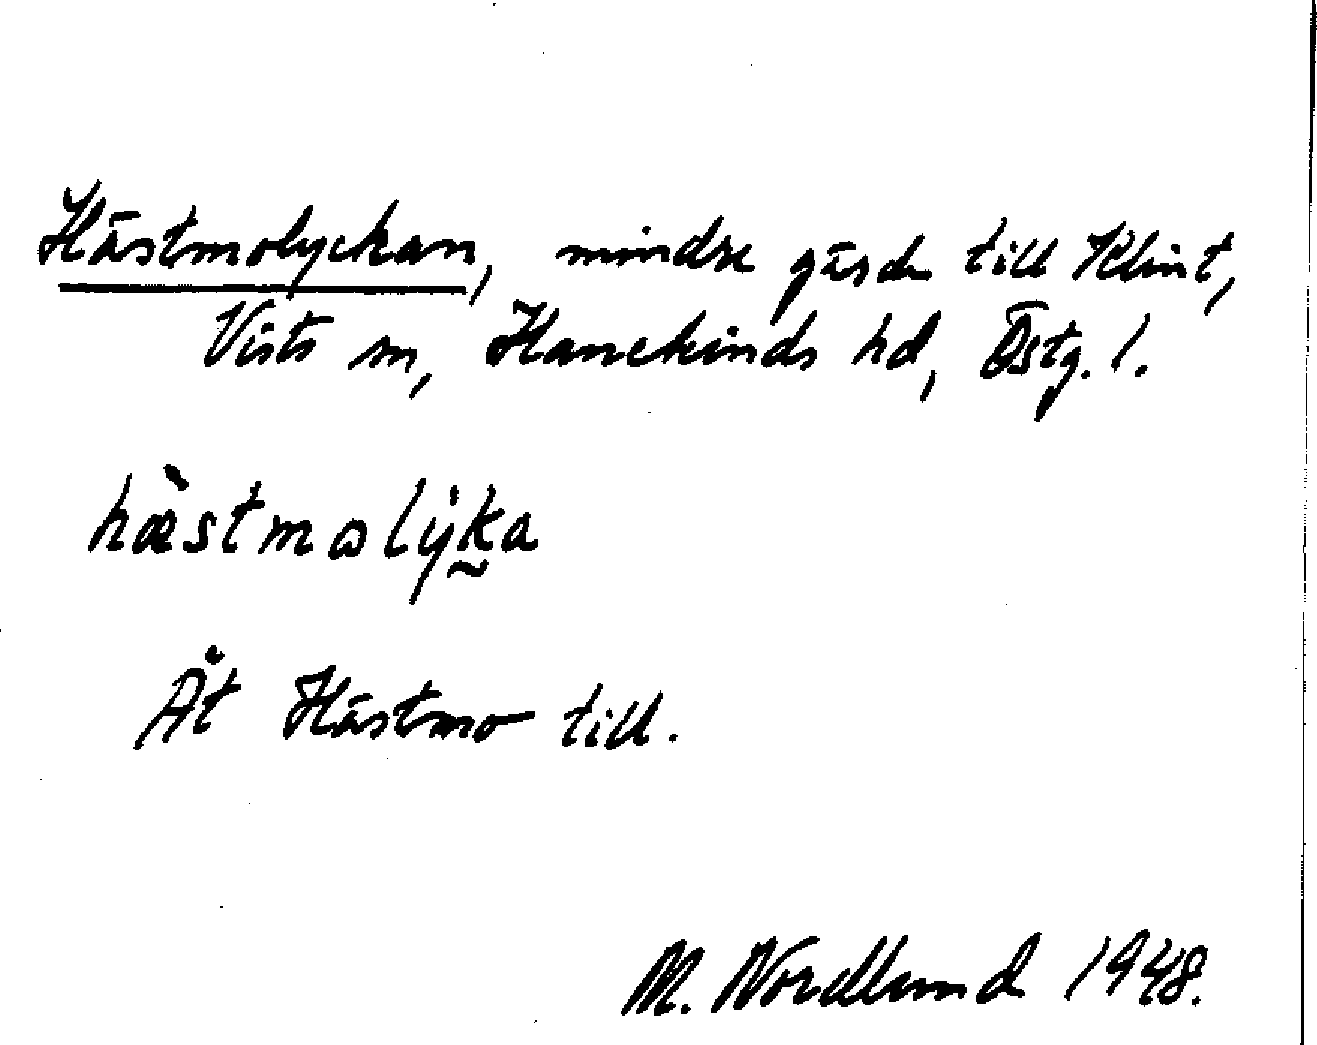 Hästmolyckan, mindre gärde till Klint,
Vists sn, Hanekinds hd, Östg. l.
hæ̀stmωlẏk̰a
Åt Hästmo till.
M. Nordlund 1948.